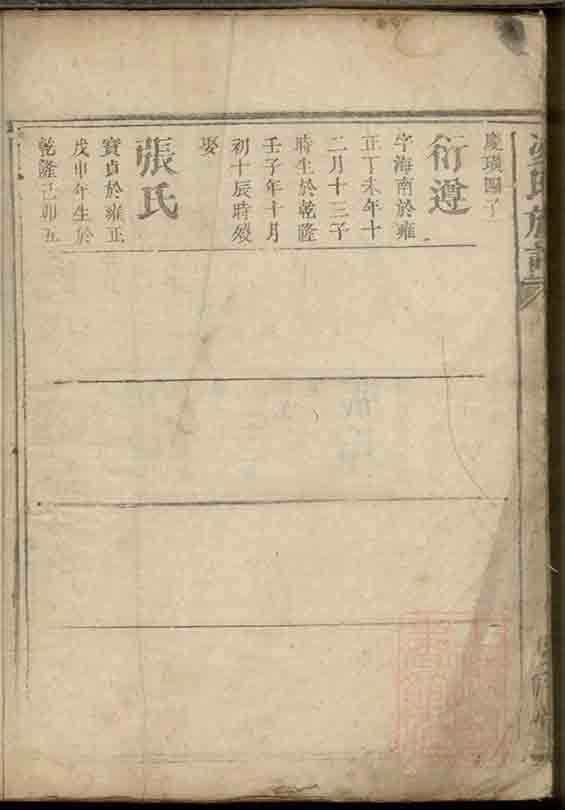 氏族譜
慶璜四子
衍遵
字海南於雍
正丁未年十
二月十三子
時生於乾隆
壬子年十月
初十辰時歿
娶
張氏
寶貞於雍正
戊申年生於
乾隆己卯五